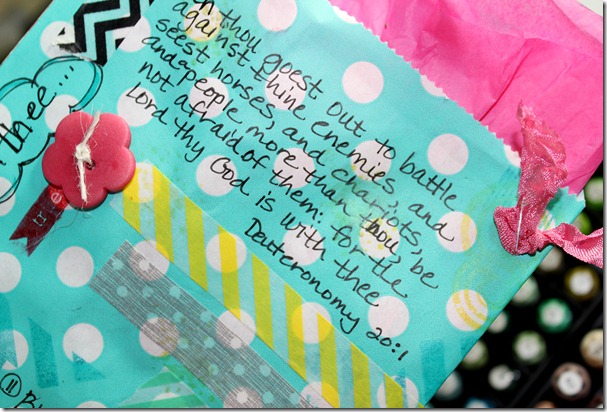 thou goest out to battle
against thine enemies, and
seest horses, and chariots,
and people more than thou, be
not afraid of them: for the
Lord thy God is with thee
Deuteronomy 20:1
thee...
me
11